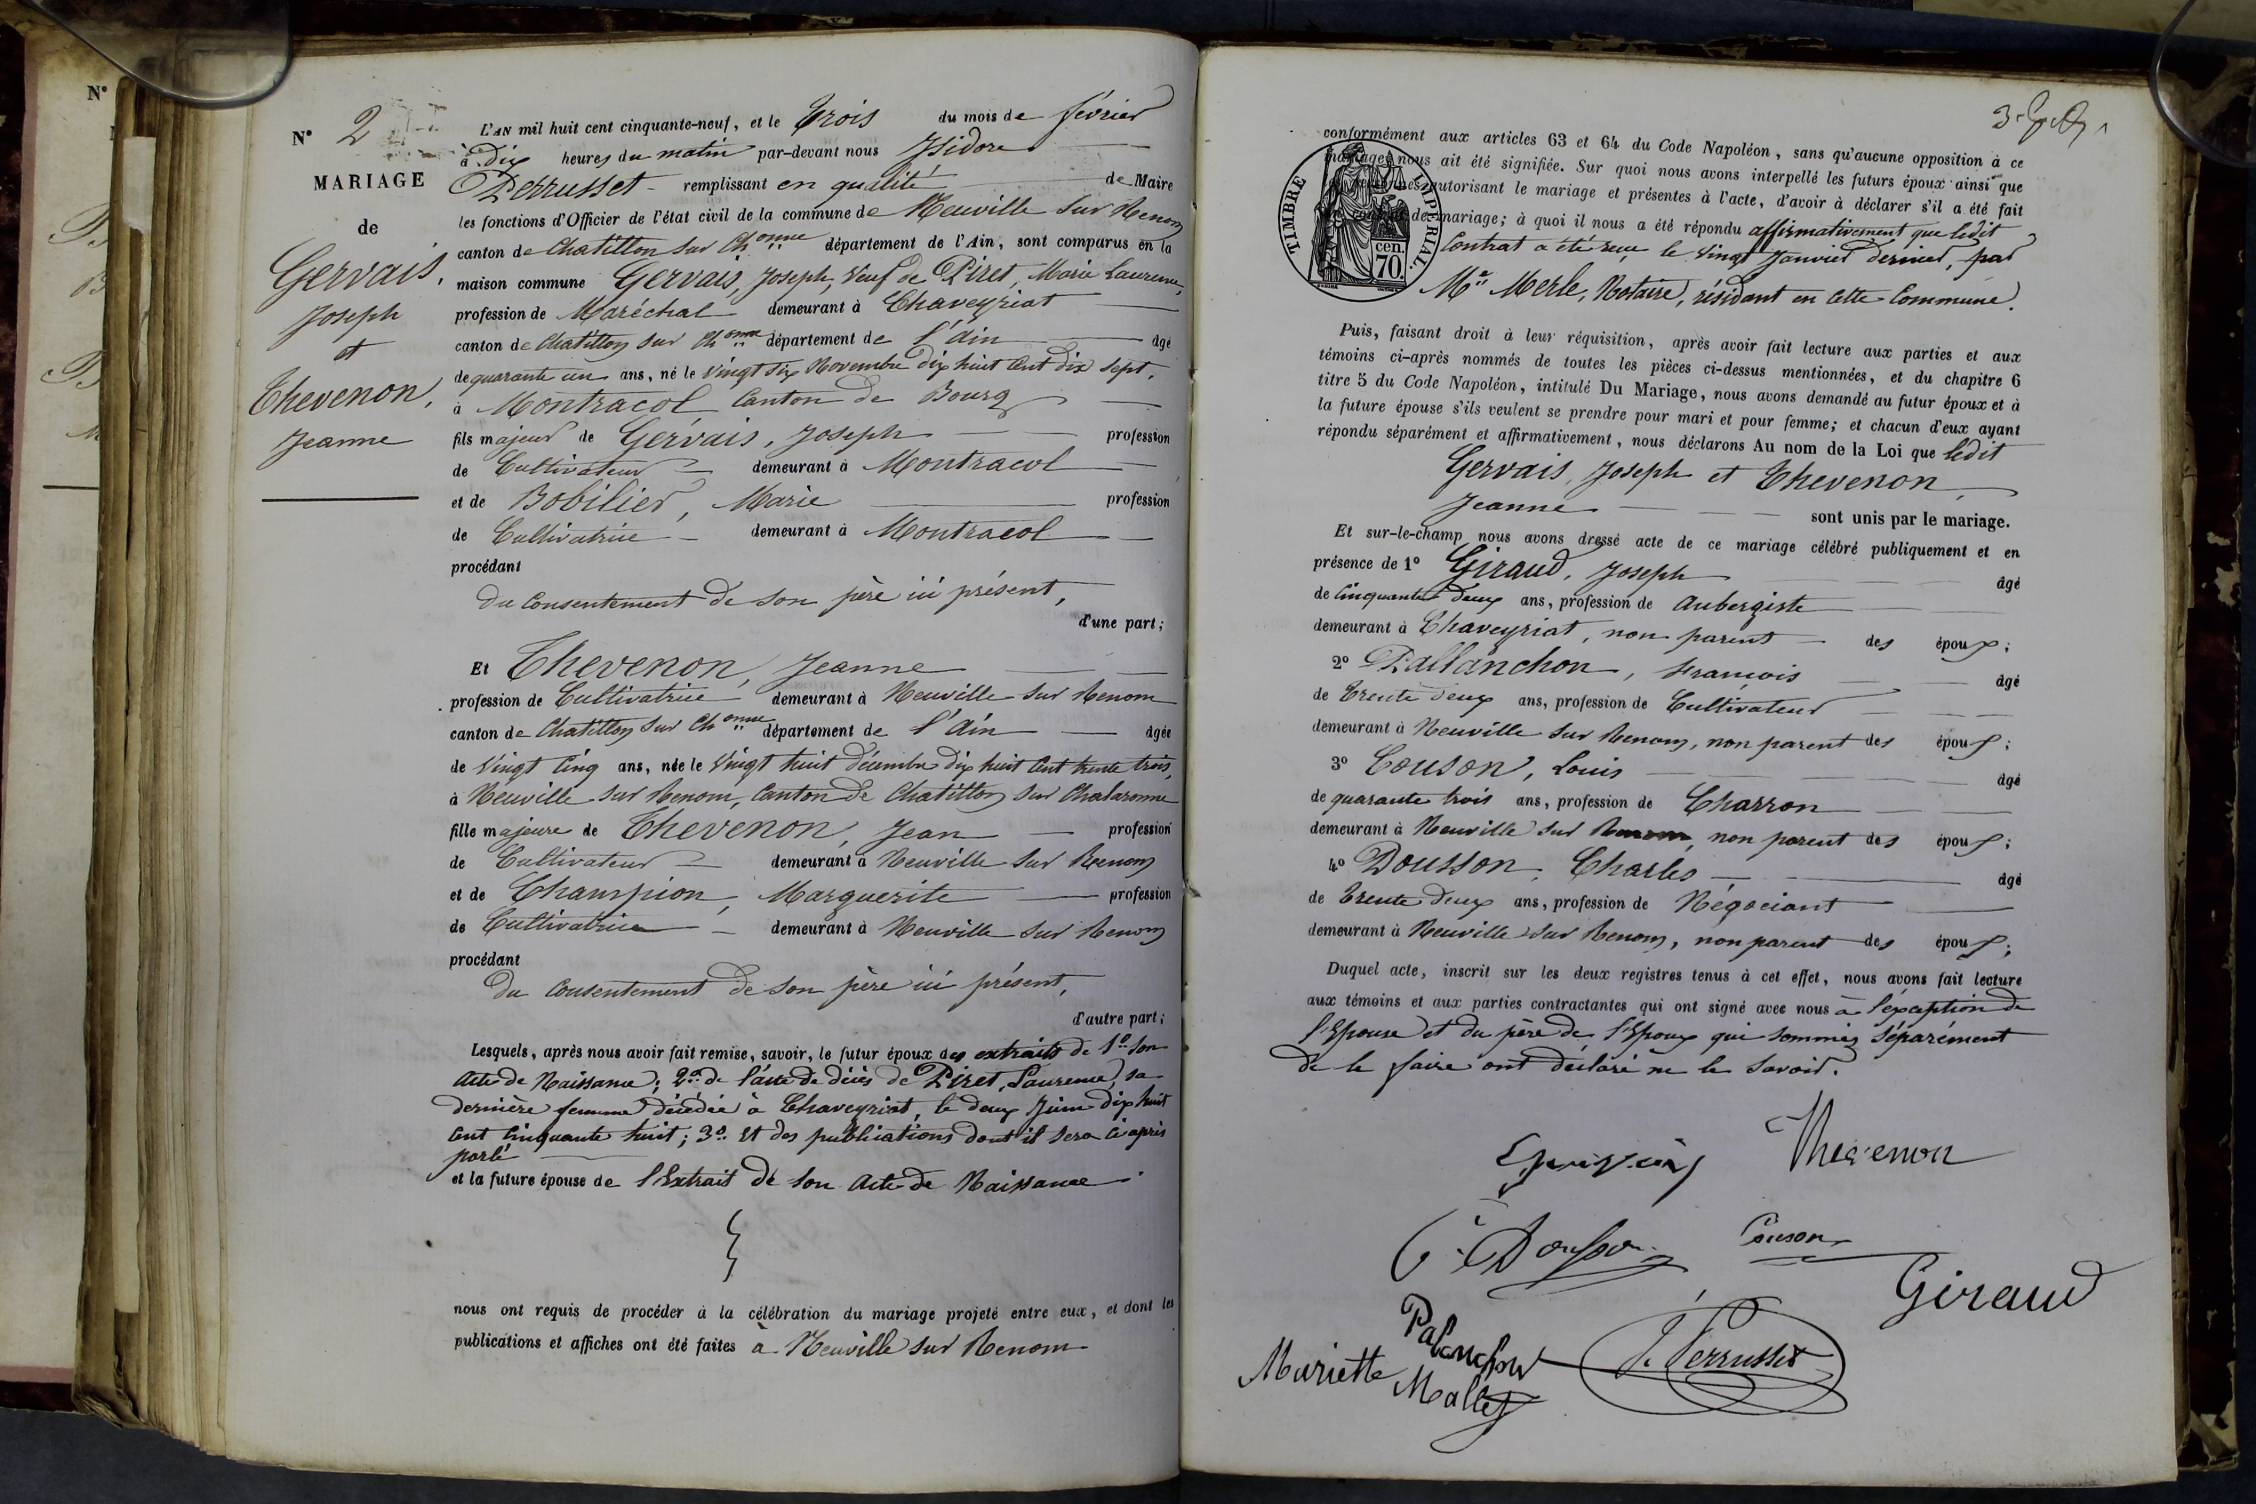 N°
N° 2
MARIAGE
de
Gervais,
Joseph
et
Thevenon,
Jeanne
L'AN mil huit cent cinquante-neuf, et le Trois du mois de février
à Dix heures du matin par-devant nous Isidore
Perrusset remplissant en qualité de Maire
les fonctions d'Officier de l'état civil de la commune de Neuville sur Renom
canton de Chatillon sur Ch onne département de l'Ain, sont comparus en la
maison commune Gervais, Joseph, Veuf de Piret, Marie Laurence,
profession de Maréchal demeurant à Chaveyriat
canton de Chatillon sur Ch onne département de l'Ain âgé
de quarante un ans, né le Vingt six Novembre dix huit Cent dix sept,
à Montracol Canton de Bourg
fils majeur de Gervais, Joseph profession
de Cultivateur demeurant à Montracol
et de Bobilier, Marie profession
de Cultivatrice demeurant à Montracol
procédant
du Consentement de son père ici présent,
d'une part;
Et Thevenon, Jeanne
profession de Cultivatrice demeurant à Neuville sur Renom
canton de Chatillon sur Ch onne département de l'Ain âgée
de Vingt Cinq ans, née le Vingt huit décembre dix huit Cent trente trois,
à Neuville sur Renom, Canton de Chatillon sur Chalaronne
fille majeure de Thevenon, Jean profession
de Cultivateur demeurant à Neuville sur Renom
et de Champion, Marguerite profession
de Cultivatrice demeurant à Neuville sur Renom
procédant
du Consentement de son père ici présent,
d'autre part;
Lesquels, après nous avoir fait remise, savoir, le futur époux des extraits de 1° son
acte de Naissance; 2° de l'acte de décès de Piret, Laurence, sa
dernière femme décédée à Chaveyriat, le deux Juin dix huit
Cent Cinquante huit; 3° Et des publications dont il sera ci après
parlé
et la future épouse de l'Extrait de son Acte de Naissance
nous ont requis de procéder à la célébration du mariage projeté entre eux, et dont les
publications et affiches ont été faites à Neuville sur Renom
conformément aux articles 63 et 64 du Code Napoléon, sans qu'aucune opposition à ce
mariage nous ait été signifiée. Sur quoi nous avons interpellé les futurs époux ainsi que
autorisant le mariage et présentes à l'acte, d'avoir à déclarer s'il a été fait
de mariage; à quoi il nous a été répondu affirmativement que ledit
Contrat a été reçu le Vingt Janvier dernier, par
Me Merle, Notaire, résidant en cette Commune.
TIMBRE IMPÉRIAL.
cen.
70.
Puis, faisant droit à leur réquisition, après avoir fait lecture aux parties et aux
témoins ci-après nommés de toutes les pièces ci-dessus mentionnées, et du chapitre 6
titre 5 du Code Napoléon, intitulé Du Mariage, nous avons demandé au futur époux et à
la future épouse s'ils veulent se prendre pour mari et pour femme; et chacun d'eux ayant
répondu séparément et affirmativement, nous déclarons Au nom de la Loi que ledit
Gervais, Joseph et Thevenon,
Jeanne sont unis par le mariage.
Et sur-le-champ nous avons dressé acte de ce mariage célébré publiquement et en
présence de 1° Giraud, Joseph âgé
de Cinquante deux ans, profession de Aubergiste
demeurant à Chaveyriat, non parent des époux;
2° Pallanchon, François âgé
de Trente deux ans, profession de Cultivateur
demeurant à Neuville sur Renom, non parent des époux;
3° Couson, Louis âgé
de quarante trois ans, profession de Charron
demeurant à Neuville sur Renom, non parent des époux;
4° Dousson, Charles âgé
de Trente deux ans, profession de Négociant
demeurant à Neuville sur Renom, non parent des époux;
Duquel acte, inscrit sur les deux registres tenus à cet effet, nous avons fait lecture
aux témoins et aux parties contractantes qui ont signé avec nous à l'exception de
l'Epouse et du père de l'Epoux qui sommés séparément
de le faire ont déclaré ne le savoir.
Thevenon
C. Dousson
Couson
Giraud
Palanchon
J. Perrusset
Mariette Mallet